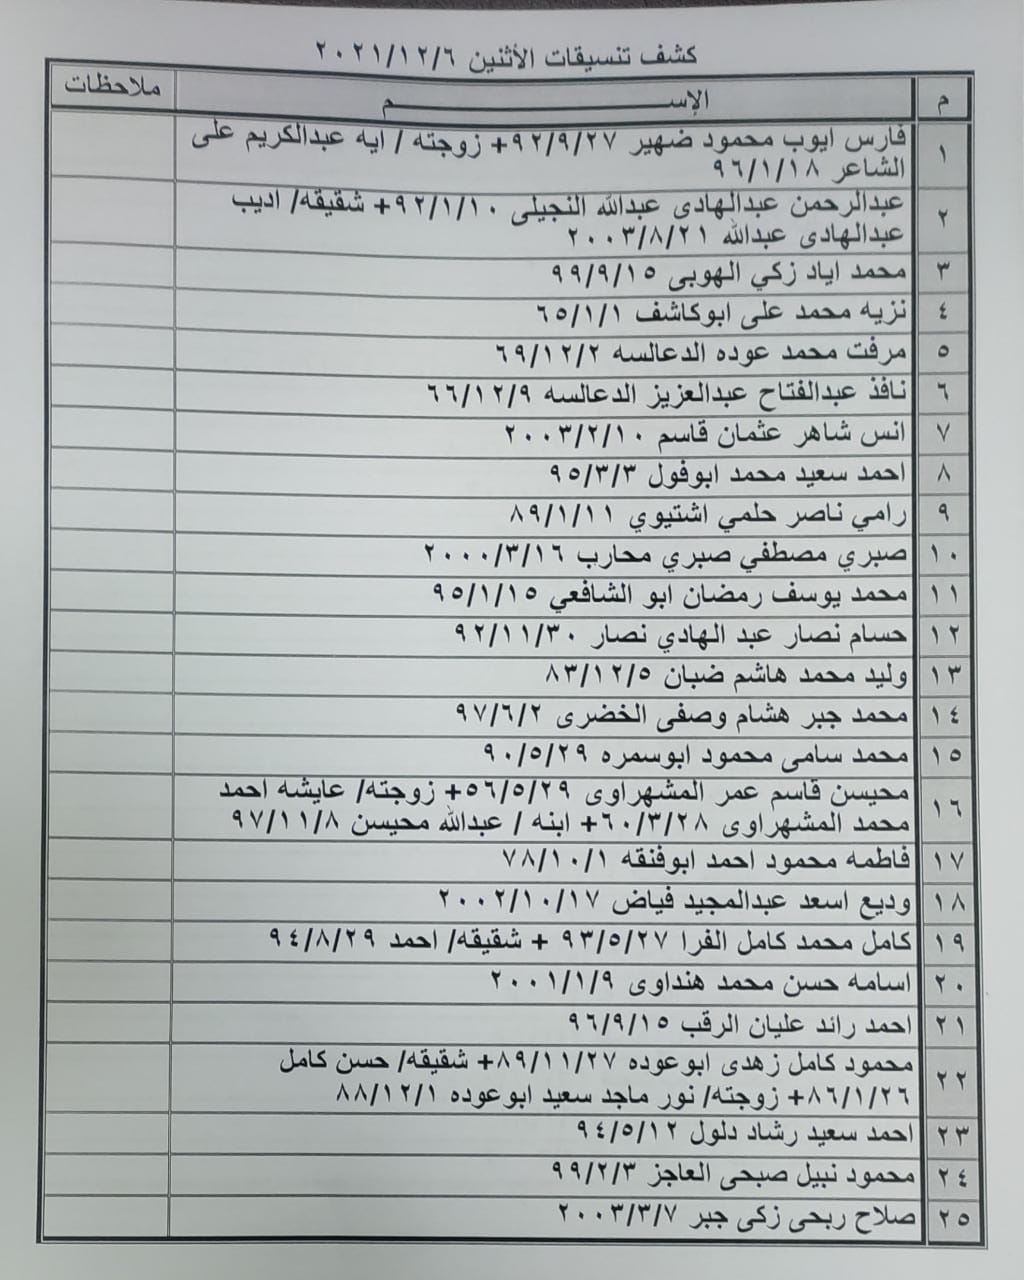 كشف تنسيقات الأثنين ٢٠٢١/١٢/٦
م الإســـــــــــــــــــــــــم ملاحظات
١ فارس ايوب محمود ضهير ٩٢/٩/٢٧+ زوجته / ايه عبدالكريم على
الشاعر ٩٦/١/١٨
٢ عبدالرحمن عبدالهادى عبدالله النجيلى ٩٢/١/١٠+ شقيقه/ اديب
عبدالهادى عبدالله ٢٠٠٣/٨/٢١
٣ محمد اياد زكي الهوبى ٩٩/٩/١٥
٤ نزيه محمد على ابوكاشف ٦٥/١/١
٥ مرفت محمد عوده الدعالسه ٦٩/١٢/٢
٦ نافذ عبدالفتاح عبدالعزيز الدعالسه ٦٦/١٢/٩
٧ انس شاهر عثمان قاسم ٢٠٠٣/٢/١٠
٨ احمد سعيد محمد ابوفول ٩٥/٣/٣
٩ رامي ناصر حلمي اشتيوي ٨٩/١/١١
١٠ صبري مصطفي صبري محارب ٢٠٠٠/٣/١٦
١١ محمد يوسف رمضان ابو الشافعي ٩٥/١/١٥
١٢ حسام نصار عبد الهادي نصار ٩٢/١١/٣٠
١٣ وليد محمد هاشم ضبان ٨٣/١٢/٥
١٤ محمد جبر هشام وصفى الخضرى ٩٧/٦/٢
١٥ محمد سامى محمود ابوسمره ٩٠/٥/٢٩
١٦ محيسن قاسم عمر المشهراوى ٥٦/٥/٢٩+ زوجته/ عايشه احمد
محمد المشهراوى ٦٠/٣/٢٨+ ابنه / عبدالله محيسن ٩٧/١١/٨
١٧ فاطمه محمود احمد ابوفنقه ٧٨/١٠/١
١٨ وديع اسعد عبدالمجيد فياض ٢٠٠٢/١٠/١٧
١٩ كامل محمد كامل الفرا ٩٣/٥/٢٧ + شقيقه/ احمد ٩٤/٨/٢٩
٢٠ اسامه حسن محمد هنداوى ٢٠٠١/١/٩
٢١ احمد رائد عليان الرقب ٩٦/٩/١٥
٢٢ محمود كامل زهدى ابوعوده ٨٩/١١/٢٧+ شقيقه/ حسن كامل
٨٦/١/٢٦+ زوجته/ نور ماجد سعيد ابوعوده ٨٨/١٢/١
٢٣ احمد سعيد رشاد دلول ٩٤/٥/١٢
٢٤ محمود نبيل صبحى العاجز ٩٩/٢/٣
٢٥ صلاح ربحى زكى جبر ٢٠٠٣/٣/٧